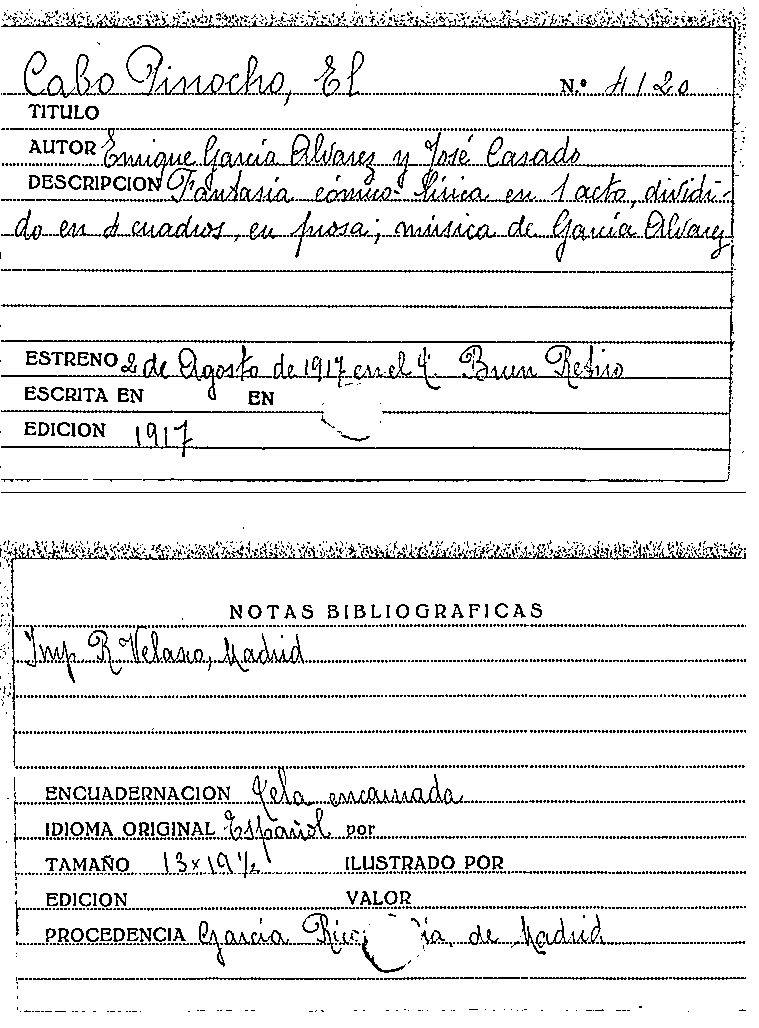 Cabo Pinocho, El N.º 4120
TITULO
AUTOR Enrique García Alvarez y José Casado
DESCRIPCION Fantasía cómico-lírica en 1 acto, dividi-
do en cuadros, en prosa; música de García Alvarez
ESTRENO 2 de Agosto de 1917 en el T. Buen Retiro
ESCRITA EN EN
EDICION 1917
NOTAS BIBLIOGRAFICAS
Imp R. Velasco, Madrid
ENCUADERNACION Tela encarnada
IDIOMA ORIGINAL Español por
TAMAÑO 13x19½ ILUSTRADO POR
EDICION VALOR
PROCEDENCIA García de Madrid